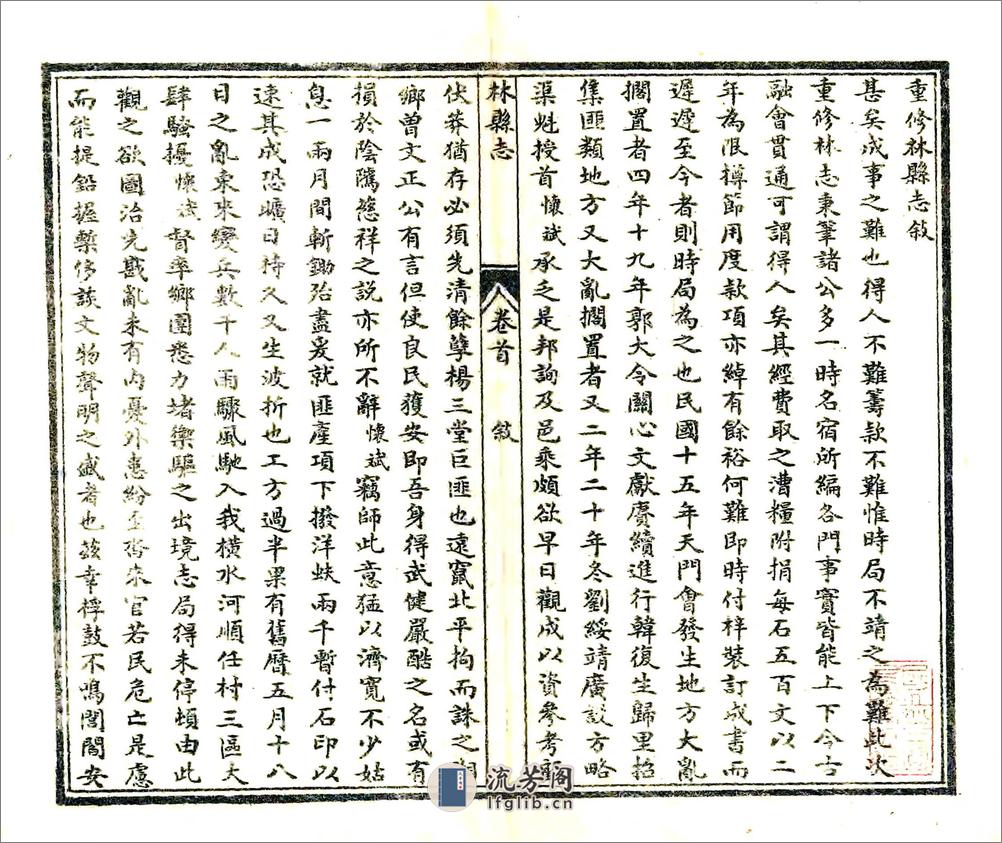 重修林縣志敘
甚矣成事之難也得人不難籌款不難惟時局不靖之為難此次
重修林志秉筆諸公多一時名宿所編各門事實皆能上下今古
融會貫通可謂得人矣其經費取之漕糧附捐每石五百文以二
年為限撙節用度款項亦綽有餘裕何難即時付梓裝訂成書而
遲遲至今者則時局為之也民國十五年天門會發生地方大亂
擱置者四年十九年郭大令關心文獻賡續進行韓復生歸里招
集匪類地方又大亂擱置者又二年二十年冬劉綏靖廣設方略
渠魁授首懷斌承乏是邦詢及邑乘頗欲早日觀成以資參考
林縣志
卷首
敘
伏莽猶存必須先清餘孽楊三堂巨匪也遠竄北平拘而誅之
鄉曾文正公有言但使良民獲安即吾身得武健嚴酷之名或有
損於陰騭慈祥之說亦所不辭懷斌竊師此意猛以濟寬不少姑
息一兩月間斬鋤殆盡爰就匪產項下撥洋蚨兩千暫付石印以
速其成恐曠日持久又生波折也工方過半果有舊曆五月十八
日之亂東來變兵數千人雨驟風馳入我橫水河順任村三區大
肆騷擾懷斌督率鄉團悉力堵禦驅之出境志局得未停頓由此
觀之欲圖治先戡亂未有內憂外患紛至沓來官若民危亡是慮
而能提鉛握槧侈談文物聲明之盛者也茲幸桴鼓不鳴閭閻安
流芳閣
lfglib.cn